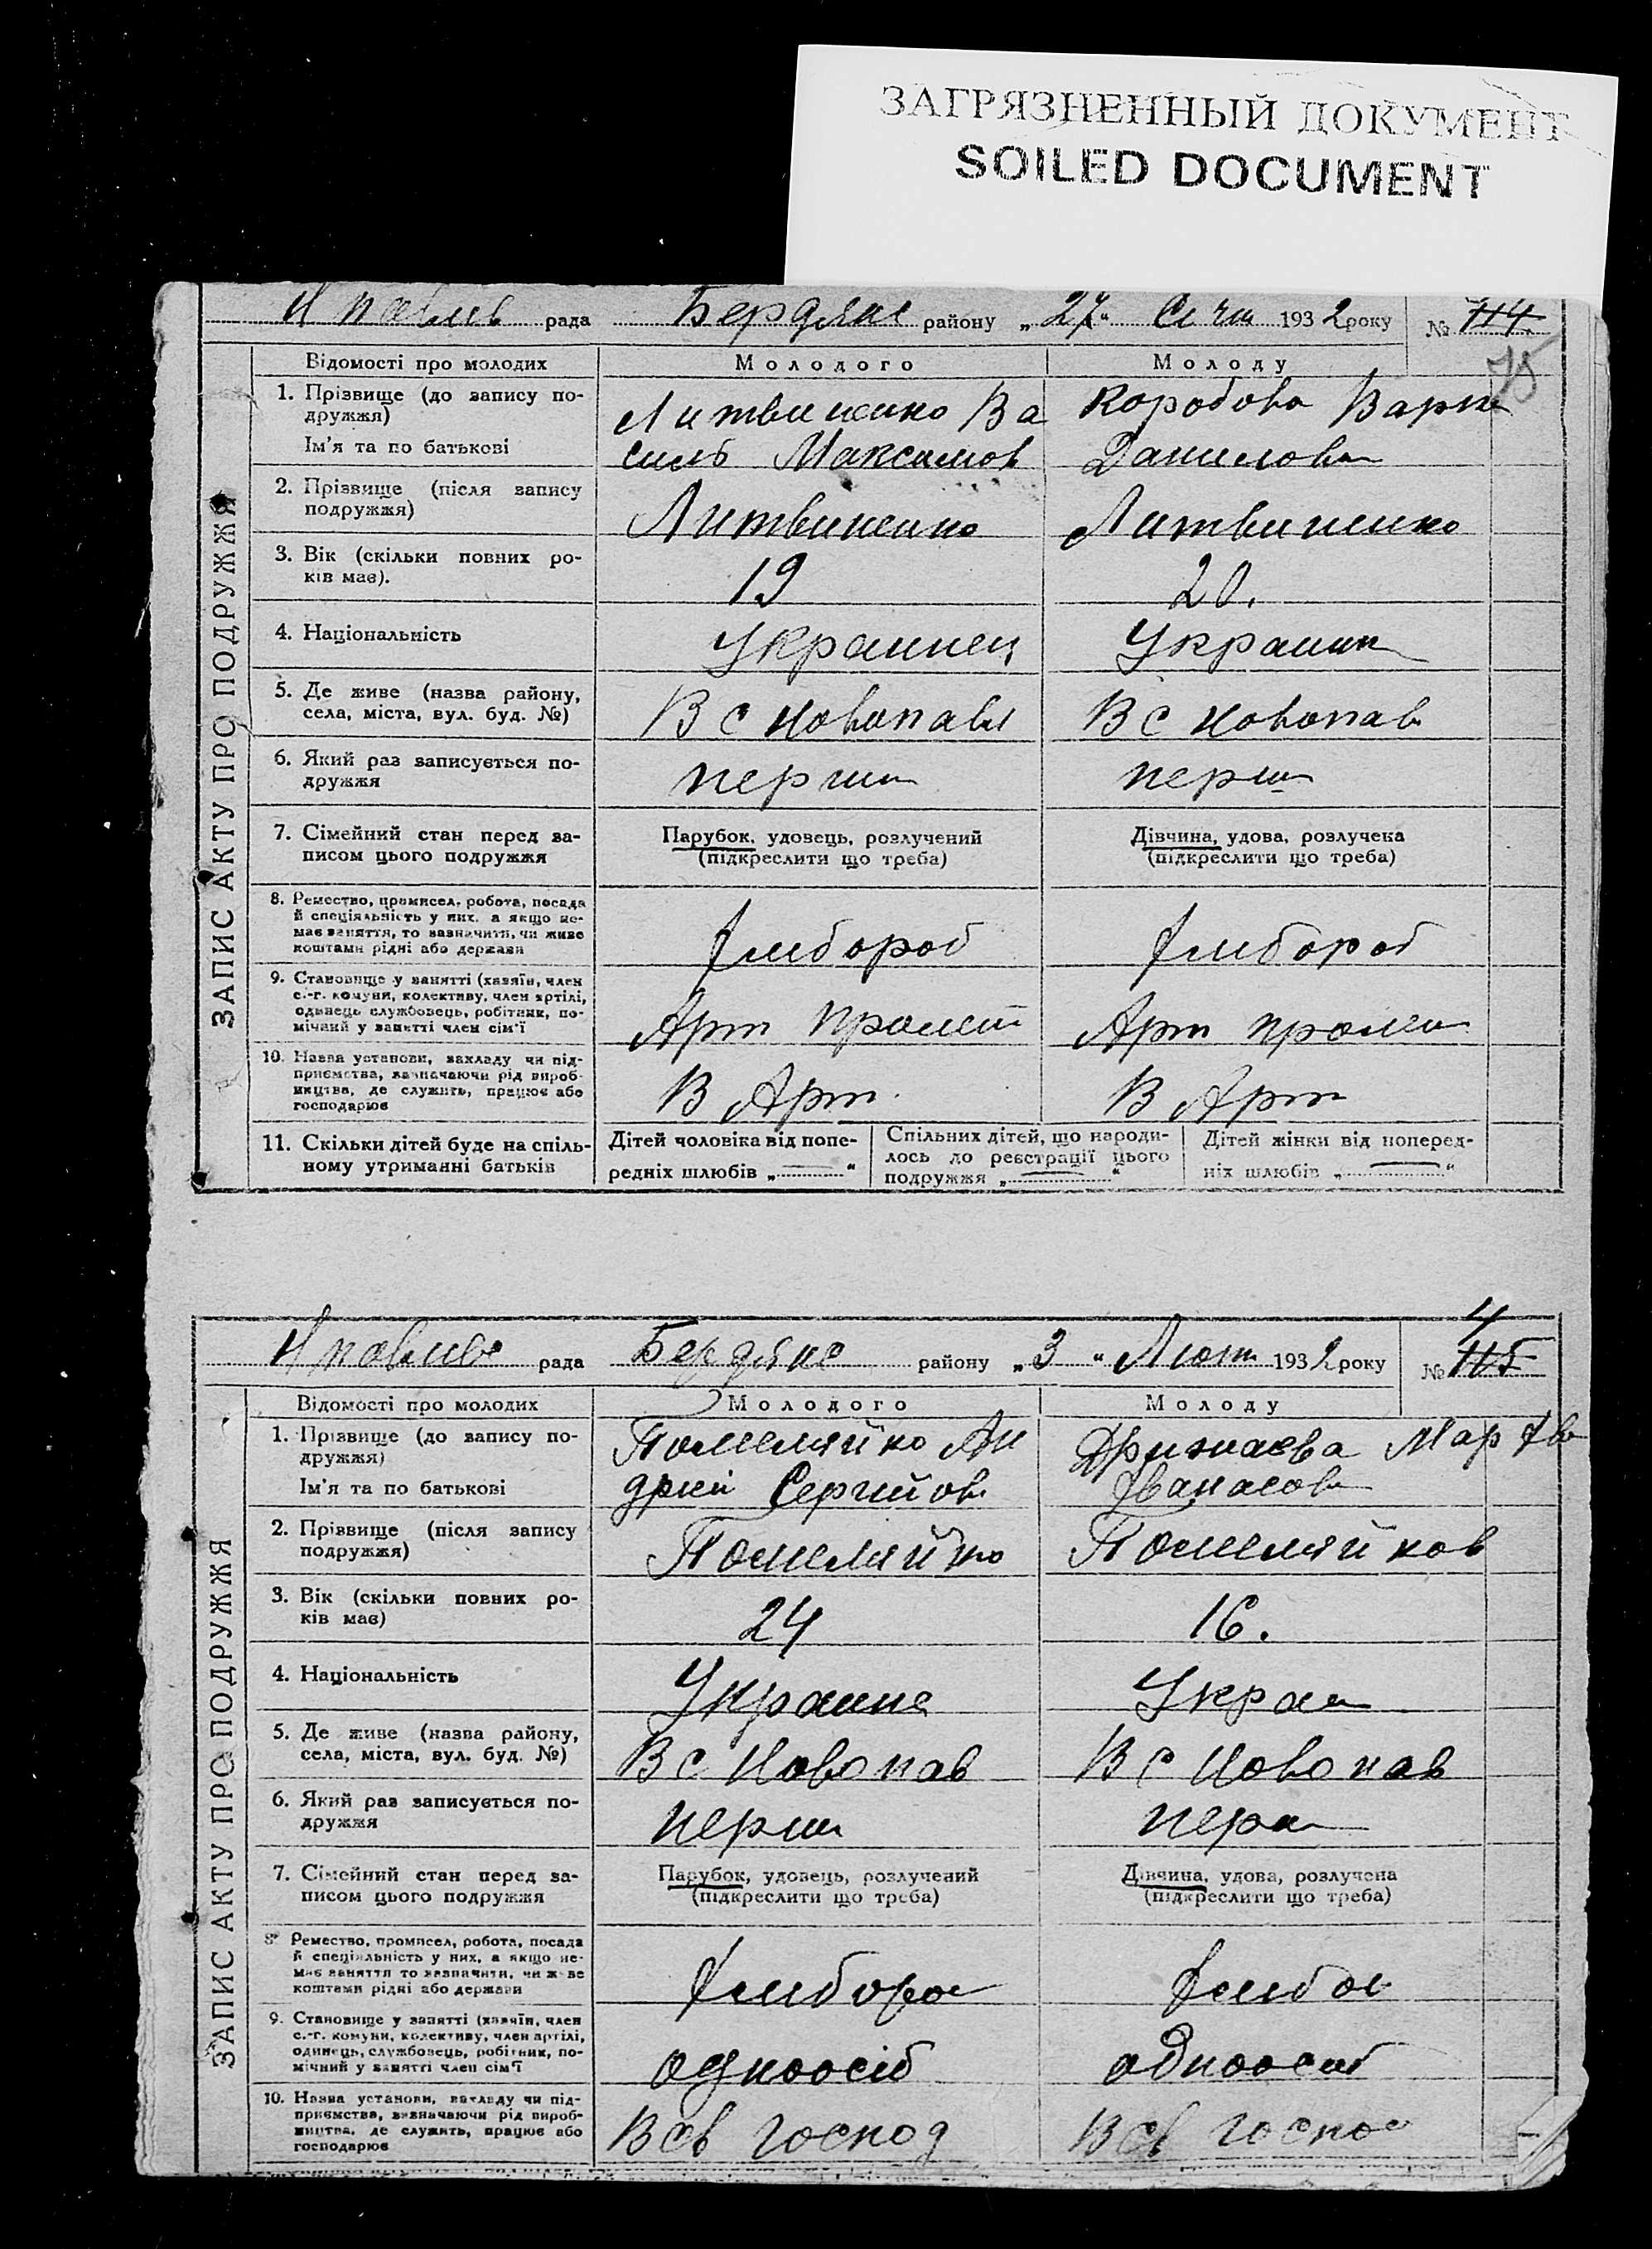 ЗАГРЯЗНЕННЫЙ ДОКУМЕНТ
SOILED DOCUMENT
Н павлів рада Бердянс району „27“ Січн 1932 року № 114
75
ЗАПИС АКТУ ПРО ПОДРУЖЖЯ
Відомості про молодих Молодого Молоду
1. Прізвище (до запису по-
дружжя)
Ім'я та по батькові
Литвиненко Ва
силь Максимов
Коробова Варв
Данилова
2. Прізвище (після запису
подружжя)
Литвиненко Литвиненко
3. Вік (скільки повних ро-
ків має).
19 20.
4. Національність Украинец Украин
5. Де живе (назва району,
села, міста, вул. буд. №)
В с Новопавл В с Новопав
6. Який раз записується по-
дружжя
перш перш
7. Сімейний стан перед за-
писом цього подружжя
Парубок, удовець, розлучений
(підкреслити що треба)
Дівчина, удова, розлучена
(підкреслити що треба)
8. Ремество, промисел, робота, посада
й спеціяльність у них, а якщо не-
має заняття, то зазначити, чи живе
коштами рідні або держави
Хлибороб Хлибороб
9. Становище у занятті (хазяїн, член
с.-г. комуни, колективу, член артілі,
одинець службовець, робітник, по-
мічний у занятті член сім'ї
Арт Пролет Арт пролет
10. Назва установи, закладу чи під-
приємства, зазначаючи рід вироб-
ництва, де служить, працює або
господарює
В Арт. В Арт
11. Скільки дітей буде на спіль-
ному утриманні батьків
Дітей чоловіка від попе-
редніх шлюбів „—“
Спільних дітей, що народи-
лось до реєстрації цього
подружжя „—“
Дітей жінки від поперед-
ніх шлюбів „—“
Н павлівс рада Бердянс району „3“ Лютн 1932 року № 115
4
ЗАПИС АКТУ ПРО ПОДРУЖЖЯ
Відомості про молодих Молодого Молоду
1. Прізвище (до запису по-
дружжя)
Ім'я та по батькові
Помеляйко Ан
дрей Сергийов
Мар
2. Прізвище (після запису
подружжя)
Помеляйко Помеляйков
3. Вік (скільки повних ро-
ків має)
24 16.
4. Національність Украине Украи
5. Де живе (назва району,
села, міста, вул. буд. №)
В с Новопав В с Новопав
6. Який раз записується по-
дружжя
перш перш
7. Сімейний стан перед за-
писом цього подружжя
Парубок, удовець, розлучений
(підкреслити що треба)
Дівчина, удова, розлучена
(підкреслити що треба)
8. Ремество, промисел, робота, посада
й спеціяльність у них, а якщо не-
має заняття то зазначити, чи живе
коштами рідні або держави
Хлиборо Хлибо
9. Становище у занятті (хазяїн, член
с.-г. комуни, колективу, член артілі,
одинець, службовець, робітник, по-
мічний у занятті член сім'ї
одноосіб одноосиб
10. Назва установи, закладу чи під-
приємства, зазначаючи рід вироб-
ництва, де служить, працює або
господарює
В св господ В св госпо